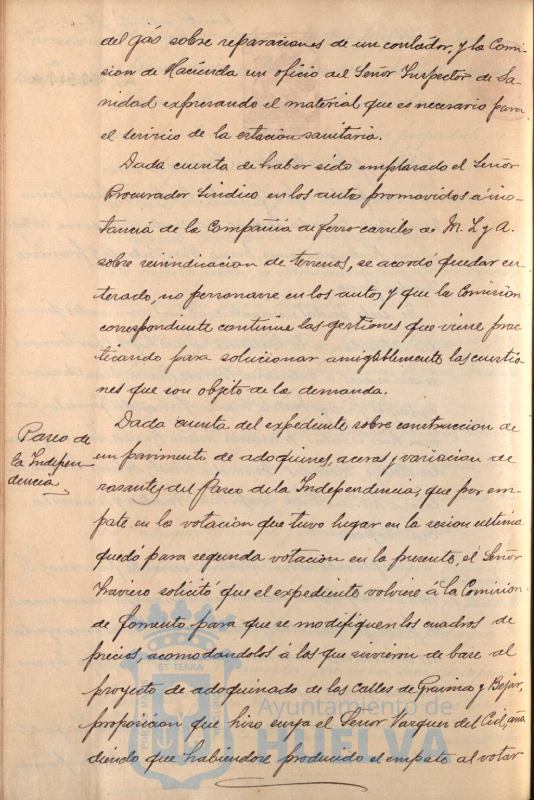 del gas sobre reparaciones de un contador, y la Comi
sion de Hacienda un oficio del Señor Inspector de Sa-
nidad expresando el material que es necesario para
el servicio de la estacion sanitaria.
Dada cuenta de haber sido emplazado el Señor
Procurador Síndico en los autos promovidos á ins-
tancia de la Compañia de ferro carriles de M. Z y A.
sobre reivindicacion de terrenos, se acordó quedar en
terado, no personarse en los autos y que la Comision
correspondiente continue las gestiones que viene prac
ticando para solucionar amigablemente las cuestio
nes que son objeto de la demanda.
Paseo de
la Indepen
dencia
Dada cuenta del expediente sobre construccion de
un pavimento de adoquines, aceras y variacion de
rasantes del Paseo de la Independencia, que por em-
pate en la votacion que tuvo lugar en la sesion ultima
quedó para segunda votacion en la presente, el Señor
solicitó que el expediente volviese á la Comision
de fomento para que se modifiquen los cuadros de
precios, acomodandolos á los que sirvieron de base al
proyecto de adoquinado de las calles de Gravina y Bejar,
proposicion que hizo suya el Señor Vazquez del Cid, aña
diendo que habiendose producido el empate al votar
PORTUS MARIS
ET TERRÆ
Ayuntamiento de
HUELVA